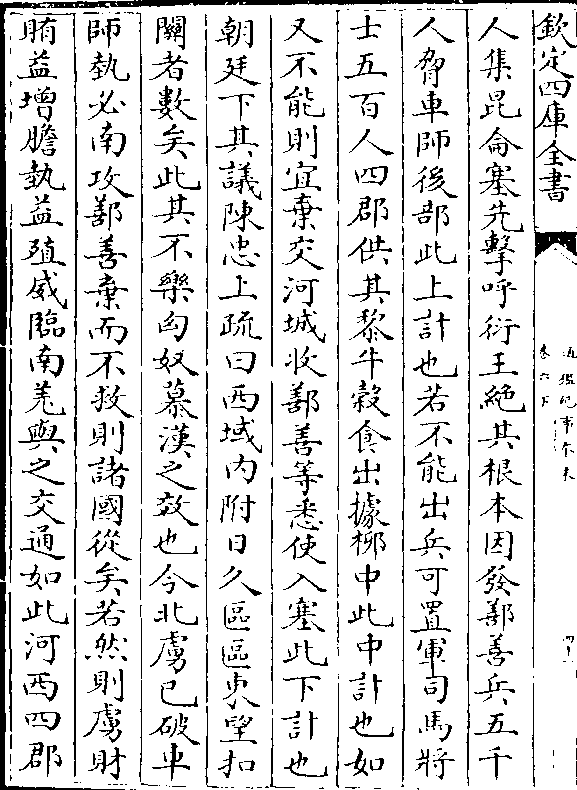 欽定四庫全書
通鑑紀事本末
卷六下
人集昆侖塞先擊呼衍王絶其根本因發鄯善兵五千
人脅車師後部此上計也若不能出兵可置軍司馬將
士五百人四郡供其黎牛穀食出據栁中此中計也如
又不能則宜棄交河城收鄯善等悉使入塞此下計也
朝廷下其議陳忠上疏曰西域内附日久區區東望扣
關者數矣此其不樂匈奴慕漢之效也今北虜已破車
師埶必南攻鄯善棄而不救則諸國從矣若然則虜財
賄益增膽埶益殖威臨南羌與之交通如此河西四郡